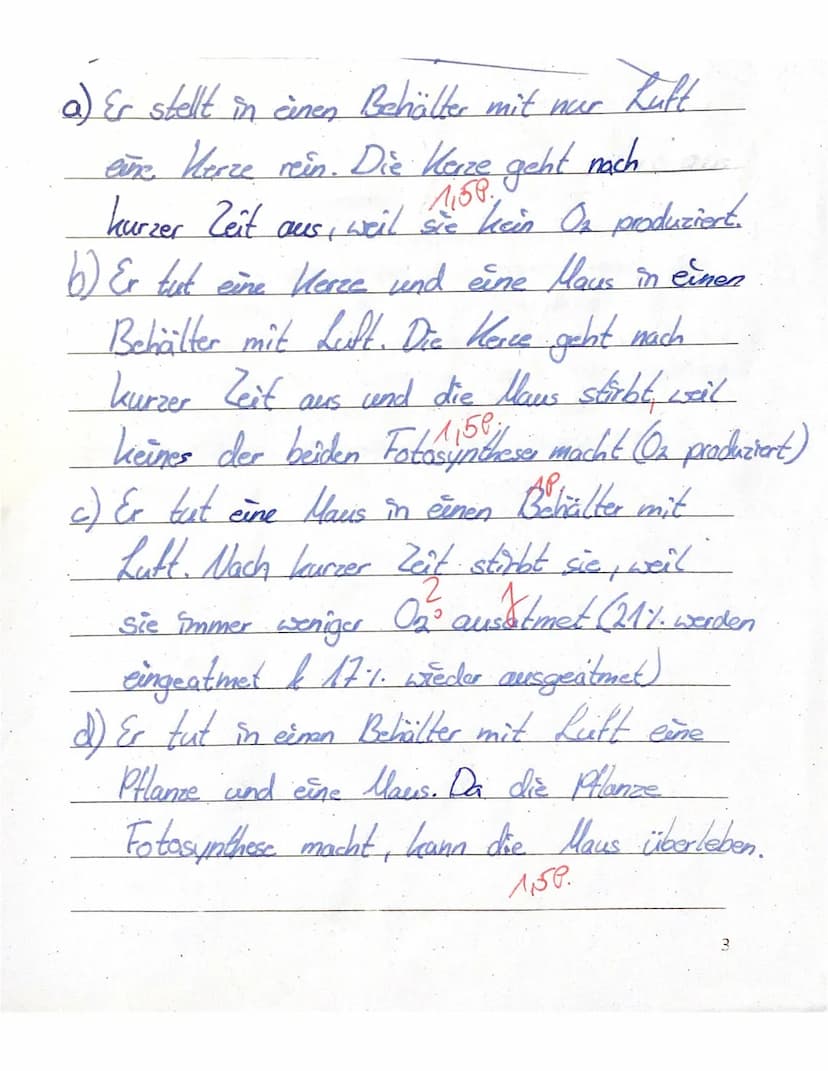 a) Er stellt in einen Behälter mit nur Luft
eine Kerze rein. Die Kerze geht nach
1,5P.
kurzer Zeit aus, weil sie kein O₂ produziert.
b) Er tut eine Kerze und eine Maus in einen
Behälter mit Luft. Die Kerze geht nach
kurzer Zeit aus und die Maus stirbt, weil
1,5P.
keines der beiden Fotosynthese macht (O₂ produziert)
1P.
c) Er tut eine Maus in einen Behälter mit
Luft. Nach kurzer Zeit stirbt sie, weil
2
sie immer weniger O₂ ausatmet (21%. werden
eingeatmet & 17%. wieder ausgeatmet)
d) Er tut in einen Behälter mit Luft eine
Pflanze und eine Maus. Da die Pflanze
Fotosynthese macht, kann die Maus überleben.
1,5P.
3